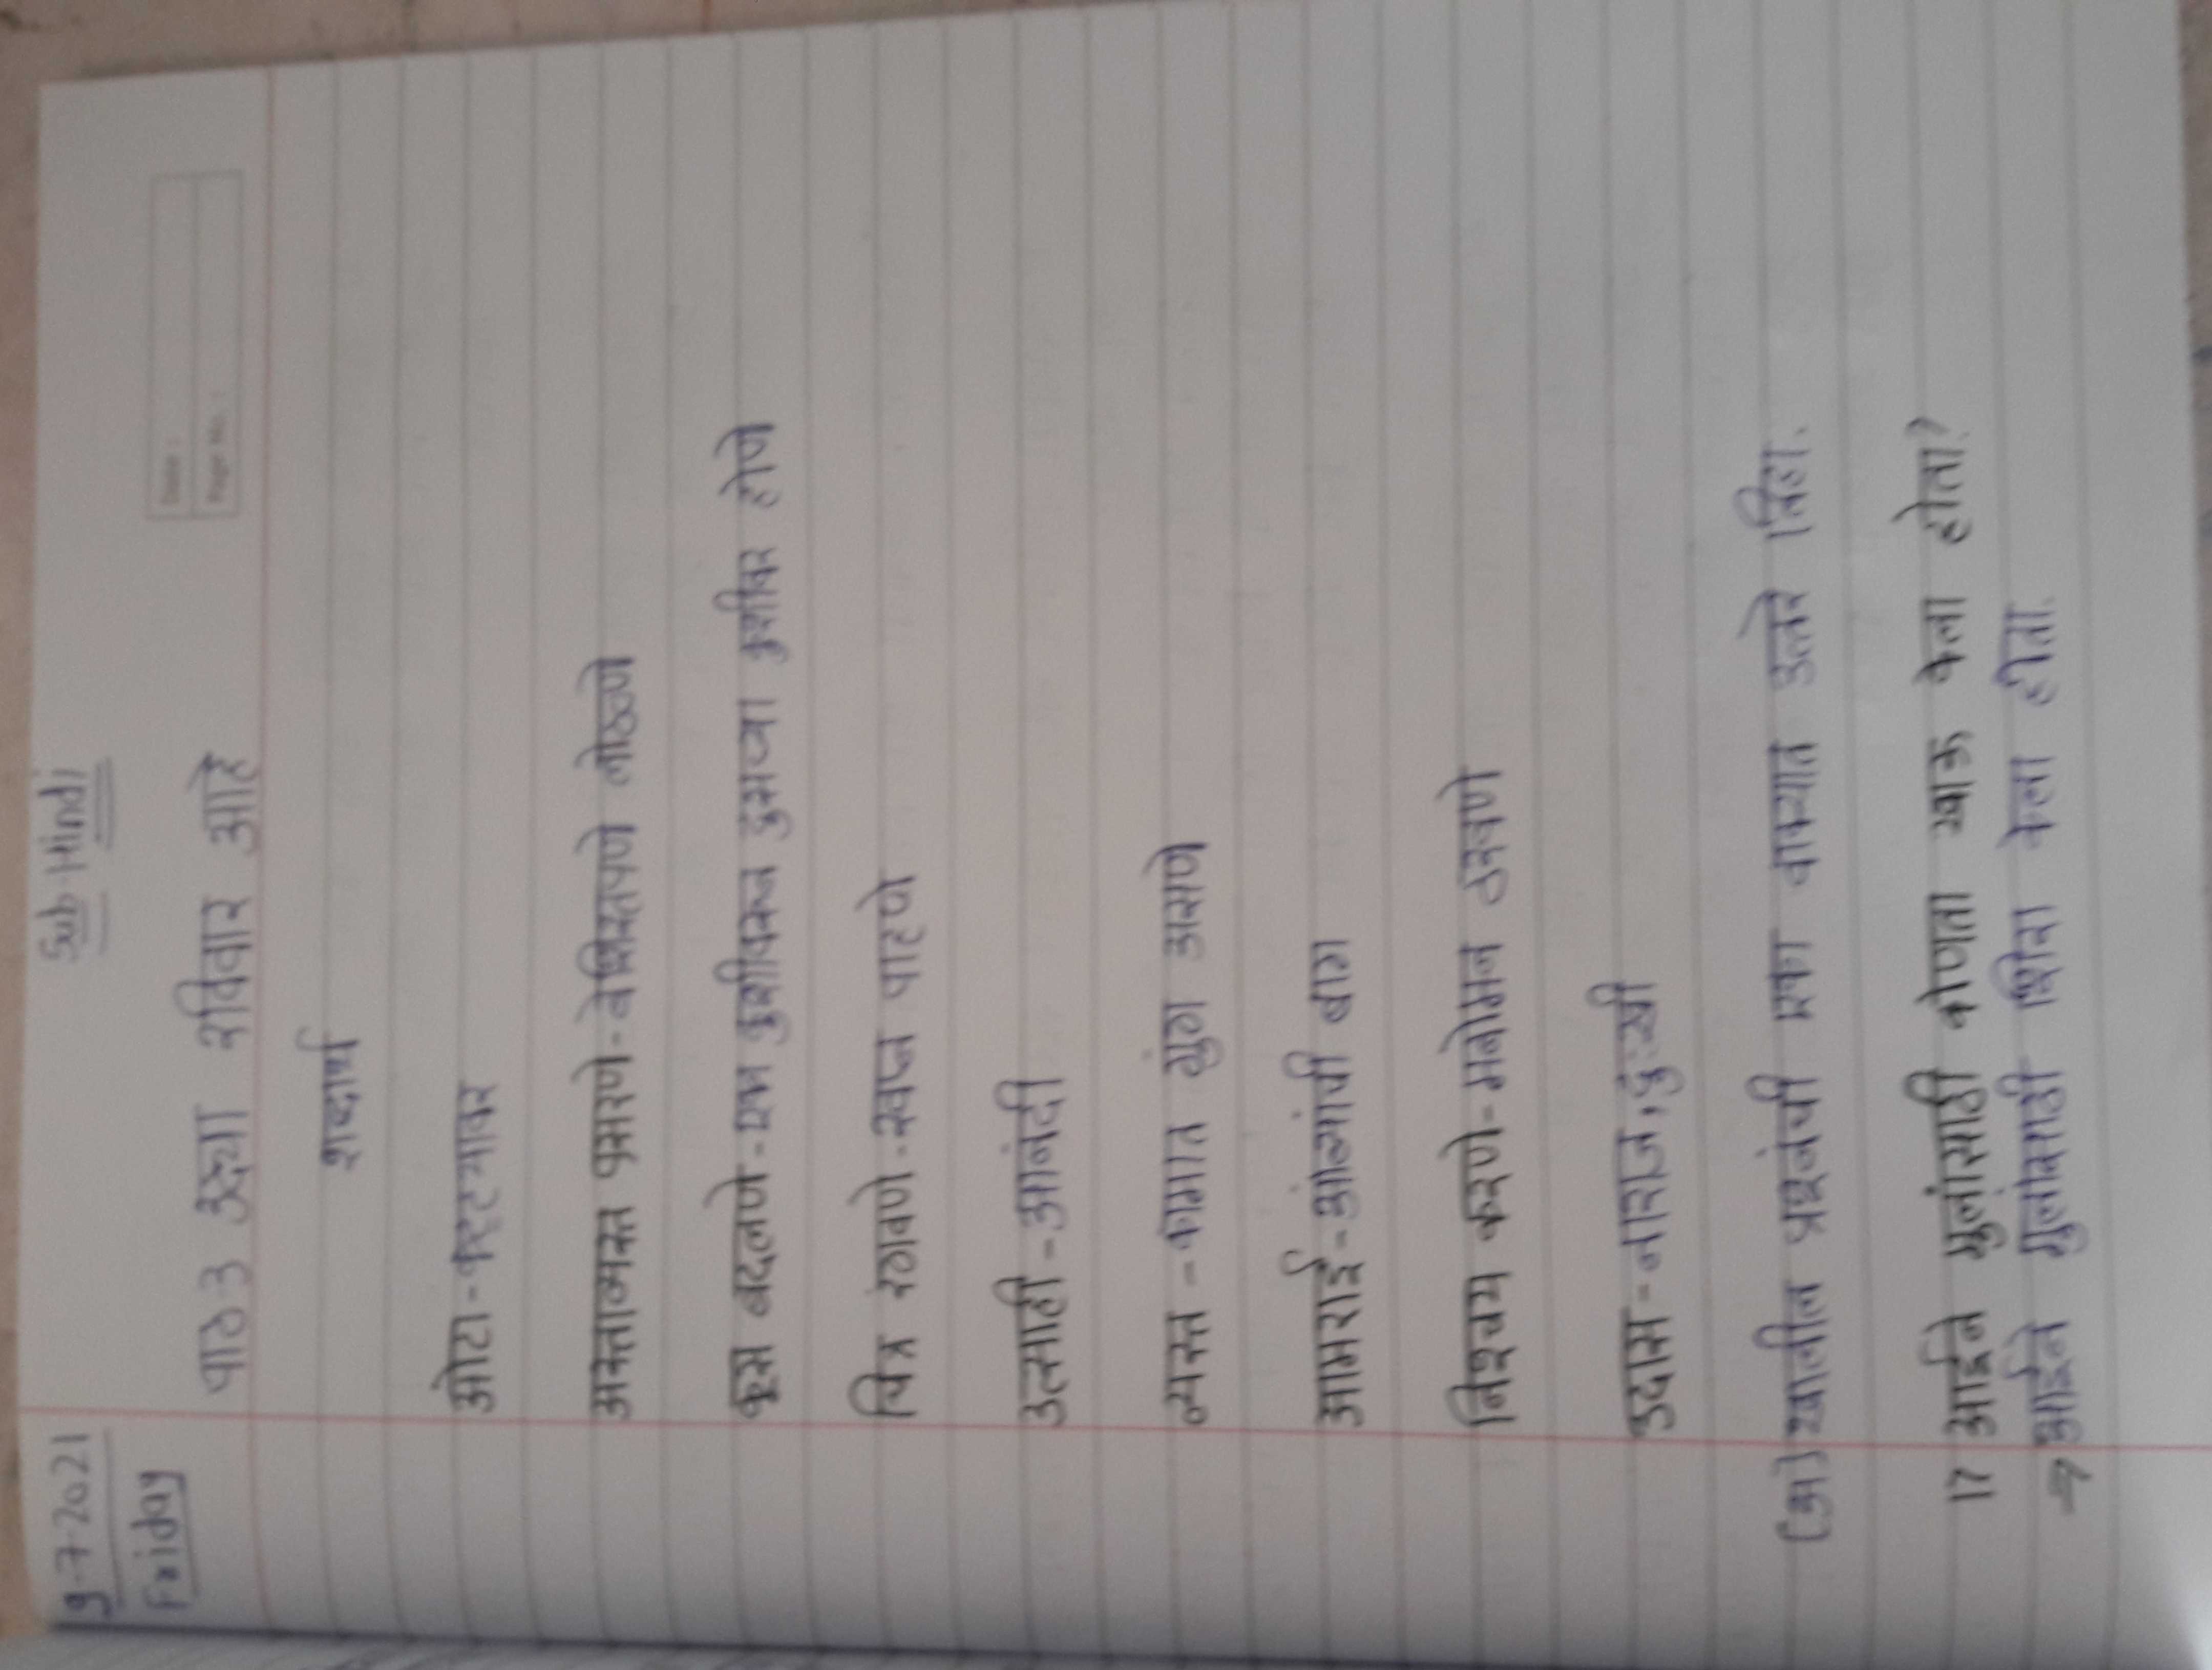 9-7-2021
Friday
Sub Hindi
Date :
Page No. :
पाठ 3 उद्या रविवार आहे
शब्दार्थ
ओटा - कट्टयावर
अस्ताव्यस्त पसरणे - बेशिस्तपणे लोळणे
कूस बदलणे - एका कुशीवरून दुसऱ्या कुशीवर होणे
चित्र रंगवणे - स्वप्न पाहणे
उत्साही - आनंदी
व्यस्त - कामात गुंग असणे
आमराई - आंब्यांची बाग
निश्चय करणे - मनोमन ठरवणे
उदास - नाराज, दुःखी
(अ) खालील प्रश्नंची एका वाक्यात उत्तरे लिहा.
1) आईने मुलांसाठी कोणता खाऊ केला होता?
→ आईने मुलांसाठी शिरा केला होता.